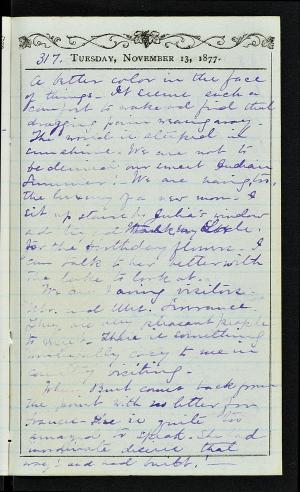 317. TUESDAY, NOVEMBER 13, 1877.
A better color in the face
of things. It seems such a
comfort to wake and find that
dragging pain away.
The world is steeped in
sunshine. We are not to
be denied our sweet Indian
Summer! We are having, too,
the luxury of a new moon. I
sit up stairs by Julia's window
for the birthday flowers. I
can talk to her better with
the lake to look at.
We are having visitors
Mr. and Mrs.
They are very pleasant people
to meet. There is something
cosy to me in
country visiting.
Burt comes back from
the point with no letter from
Francis. She is quite too
amazed to speak. She had
inordinate desire that
way! and had built!